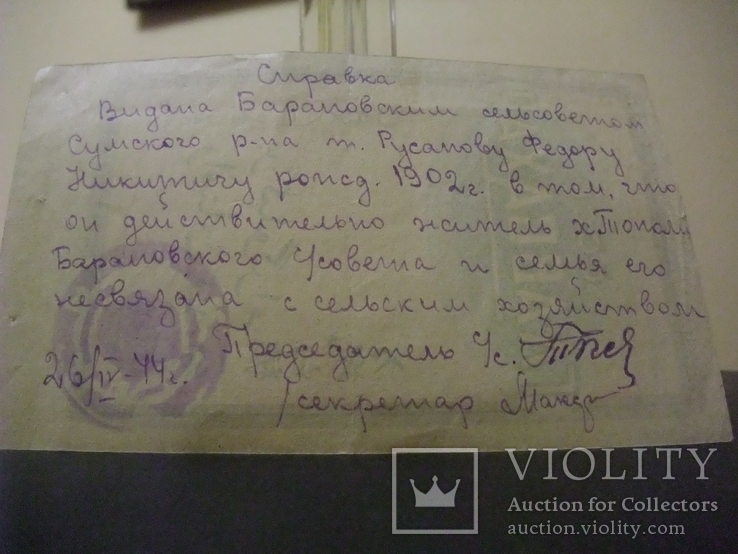 Справка
Видана Барановским сельсоветом
Сумского р-на т. Русанову Федору
Никитичу рожд. 1902 г. в том, что
он действительно житель х Тополи
Барановского с/совета и семья его
несвязана с сельским хозяйством
Председатель с/с.
26/IV-44 г.
/секретар
VIOLITY
Auction for Collectors
auction.violity.com